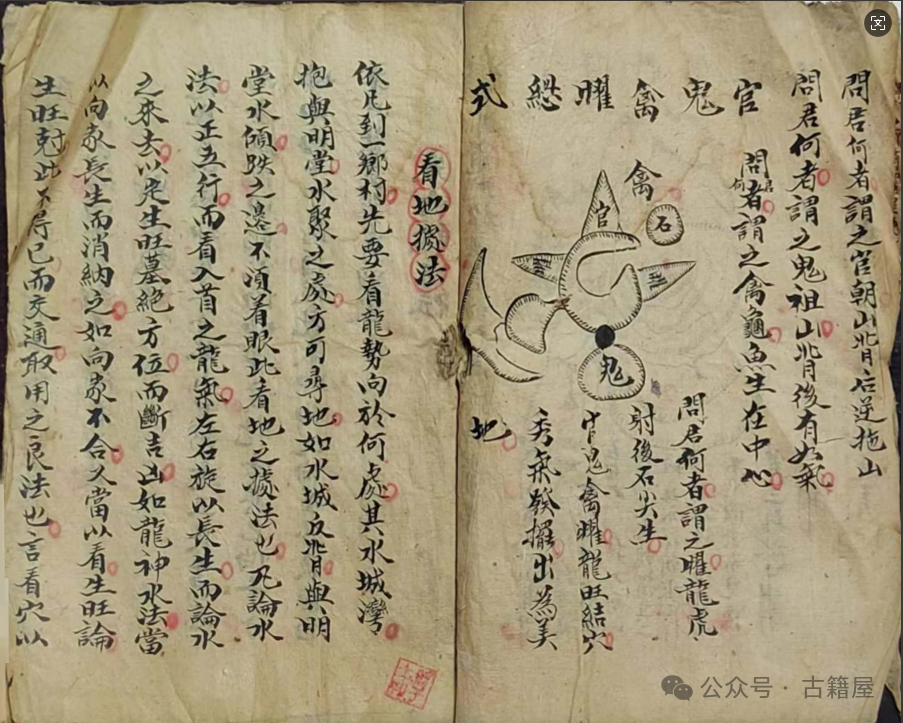 問君何者謂之官朝山背后逆拖山
問君何者謂之鬼祖山背後有如氣
官鬼禽曜總式
問君何者謂之禽龜魚生在中心
問君何者謂之曜龍虎
射後石尖生
官鬼禽曜龍旺結穴
秀氣發擢出為美
地
禽
官
石
鬼
看地㨿法
依凡到一鄉村先要看龍勢向於何處其水城灣
抱與明堂水聚之處方可尋地如水城反背與明
堂水傾跌之邊不須着眼此看地之㨿法也凡論水
法以正五行而看入首之龍氣左右旋以長生而論水
之來去以定生旺墓絕方位而斷吉凶如龍神水法當
以向家長生而消納之如向家不合又當以看生旺論
生旺尅此不得已而交通取用之良法也言看穴以
公众号·古籍屋